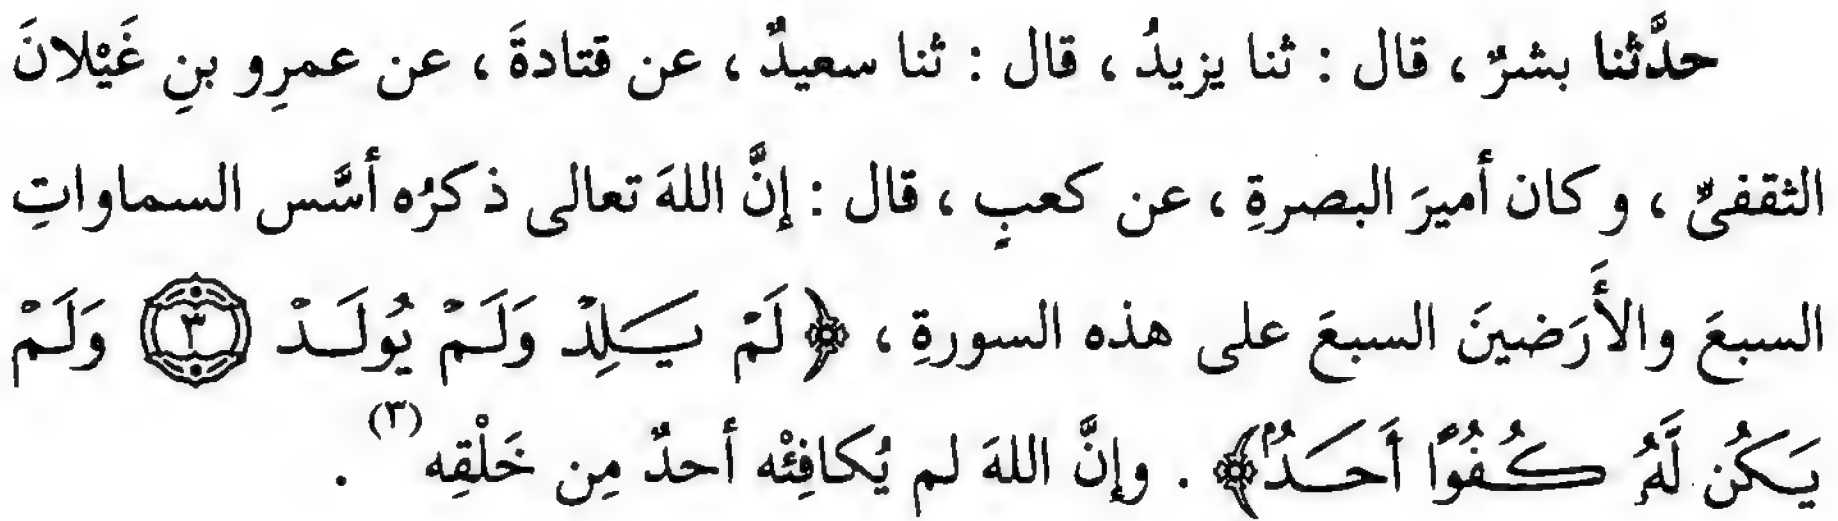 حدَّثنا بشرٌ ، قال : ثنا يزيدُ ، قال : ثنا سعيدٌ ، عن قتادةَ ، عن عمرِو بنِ غَيْلانَ
الثقفىِّ ، وكان أميرَ البصرةِ ، عن كعبٍ ، قال : إنَّ اللهَ تعالى ذكرُه أسَّس السماواتِ
السبعَ والأَرَضينَ السبعَ على هذه السورةِ ، ﴿ لَمْ يَلِدْ وَلَمْ يُولَدْ ٣ وَلَمْ
يَكُن لَّهُ كُفُوًا أَحَدٌ ﴾ . وإنَّ اللهَ لم يُكافِئْه أحدٌ مِن خَلْقِه (٣) .